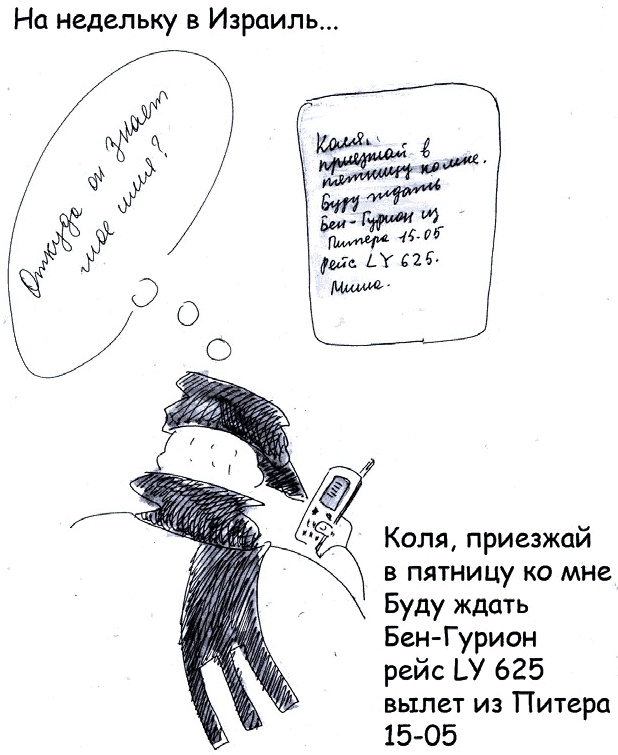 На недельку в Израиль...
Откуда он знает
мое имя?
Коля,
приезжай в
пятницу ко мне.
Буду ждать
Бен-Гурион из
Питера 15-05
рейс LY 625.
Миша.
Коля, приезжай
в пятницу ко мне
Буду ждать
Бен-Гурион
рейс LY 625
вылет из Питера
15-05